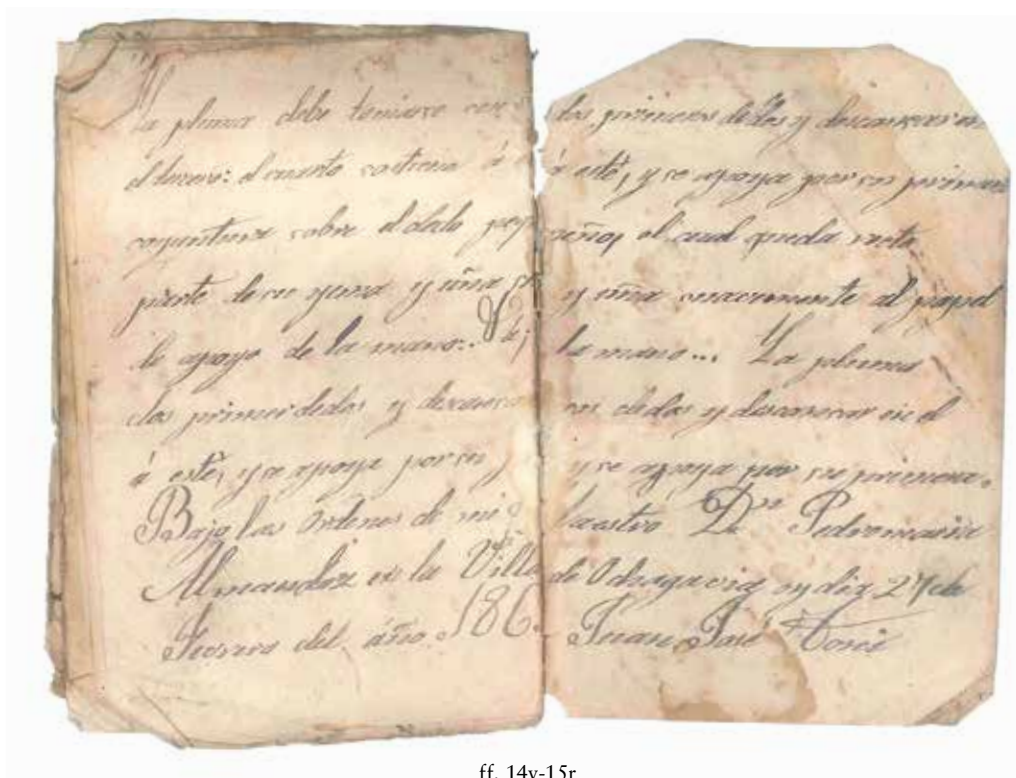 La pluma debe tomarse con dos primeros dedos y descansar en
el tercero: el cuarto sostiene á á este, y se apoya por su primera
coyuntura sobre el dedo peq ueño, el cual queda recta
parte de su yema y uña y uña suavemente al papel
de apoyo de la mano.. la mano... La pluma
dos primer dedos y descansa ros dedos y descansar en el
á este, y se apoya por su y se apoya por su primera.
Bajo las ordenes de mi Maestro Dn Pedromaria
Almandoz en la Villa de Ochagavia oy dia 27 de
Febrero del año. 186 Juan José
ff. 14v-15r